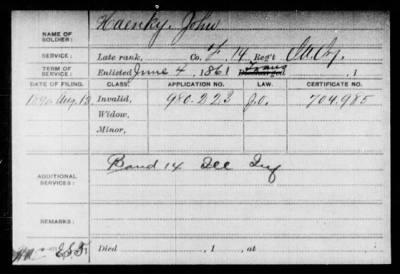 NAME OF SOLDIER: Haenky, John
SERVICE: Late rank, Co. F, 14 Reg't
TERM OF SERVICE: Enlisted June 4, 1861 Discharged Trans, 1
DATE OF FILING. CLASS. APPLICATION NO. LAW. CERTIFICATE NO.
1890 Aug. 13 Invalid, 980.223 J.O. 704.985
Widow,
Minor,
ADDITIONAL SERVICES: Band 14 Ill Inf
REMARKS:
Died , 1 , at